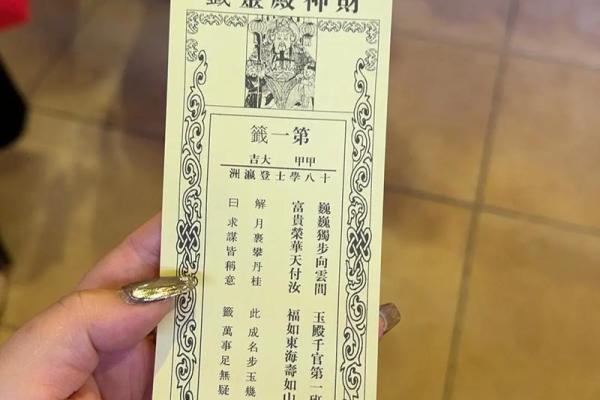 財神殿靈籤
第一籤
甲甲 大吉
十八學士登瀛洲
巍巍獨步向雲間 玉殿千官第一班
富貴榮華天付汝 福如東海壽如山
解 月裏攀丹桂 此 成名步玉幾
曰 求謀皆稱意 籤 萬事足無疑